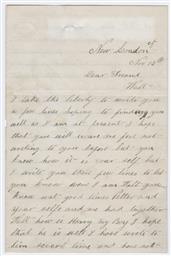 New London
Nov 15th
Dear Friend
Well
I take the liberty to write you
a few lines hoping to find you
well as I am at present I hope
that you will excuse me for not
writing to your before but you
know how it is your self but
I write you these few lines to let
you know how I am That's you
know what good times
your selfe and me had together
Well how is Henry my Boy I hope
that he is well I have wrote to
him several times and has not